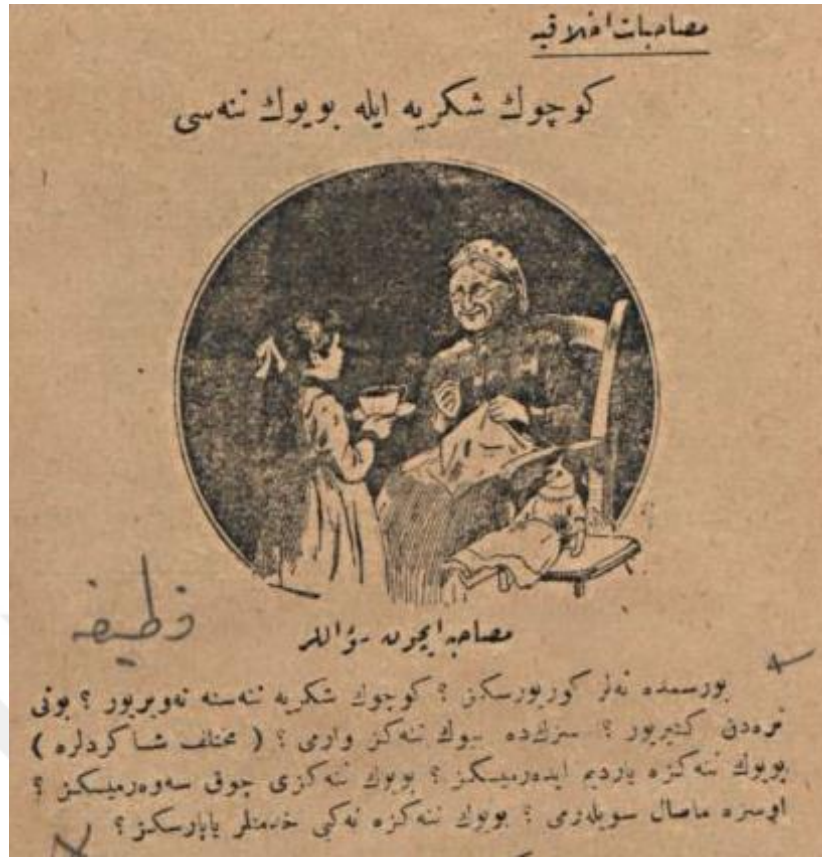 مصاحبات اخلاقیه
كوچوك شكریه ایله بویوك ننه‌سی
مصاحبه ایچون سؤاللر
بورسمده نه‌لر كوریورسكز ؟ كوچوك شكریه ننه‌سنه نه‌ویریور ؟ بونی
نره‌دن كتیریور ؟ سزك‌ده بیوك ننه‌كز وارمی ؟ ( مختلف شاكردلره )
بویوك ننه‌كزه یاردیم ایدەرمیسكز ؟ بویوك ننه‌كزی چوق سه‌وەرمیسكز ؟
اوسزه ماصال سویلرمی ؟ بویوك ننه‌كزه نه‌كبی خدمتلر یاپارسكز ؟